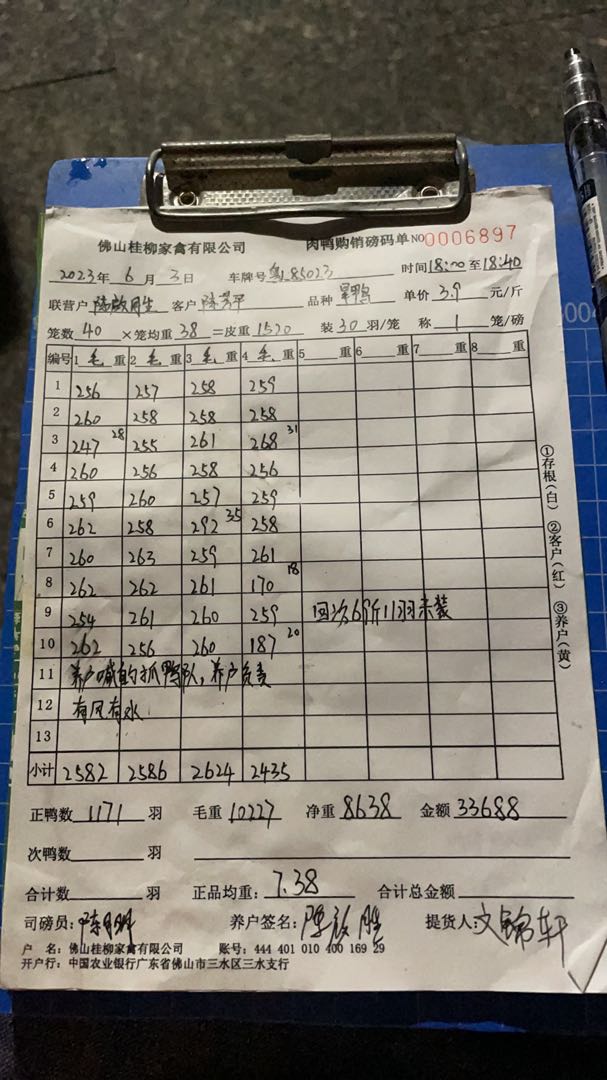 佛山桂柳家禽有限公司 肉鸭购销磅码单 NO 0006897
2023年 6月 3日 车牌号 粤85023 时间18:00至18:40
联营户 客户 陈芳平 品种 旱鸭 单价 3.9 元/斤
笼数 40 ×笼均重 38 =皮重 1520 装 30 羽/笼 称 1 笼/磅
编号 1 毛 重 2 毛 重 3 毛 重 4 毛 重 5 重 6 重 7 重 8 重
1 256 257 258 259
2 260 258 258 258
3 247 28 255 261 268 31
4 260 256 258 256
5 259 260 257 259
6 262 258 292 35 258
7 260 263 259 261
8 262 262 261 170 18
9 254 261 260 259 回次69斤11羽未装
10 262 256 260 187 20
11 养户喊的抓鸭队,养户负责
12 有风有水
13
小计 2582 2586 2624 2435
正鸭数 1171 羽 毛重 10227 净重 8638 金额 33688
次鸭数 羽
合计数 羽 正品均重: 7.38 合计总金额
司磅员: 养户签名: 提货人: 文锦轩
户 名: 佛山桂柳家禽有限公司 账号: 444 401 010 400 169 29
开户行: 中国农业银行广东省佛山市三水区三水支行
①存根(白) ②客户(红) ③养户(黄)